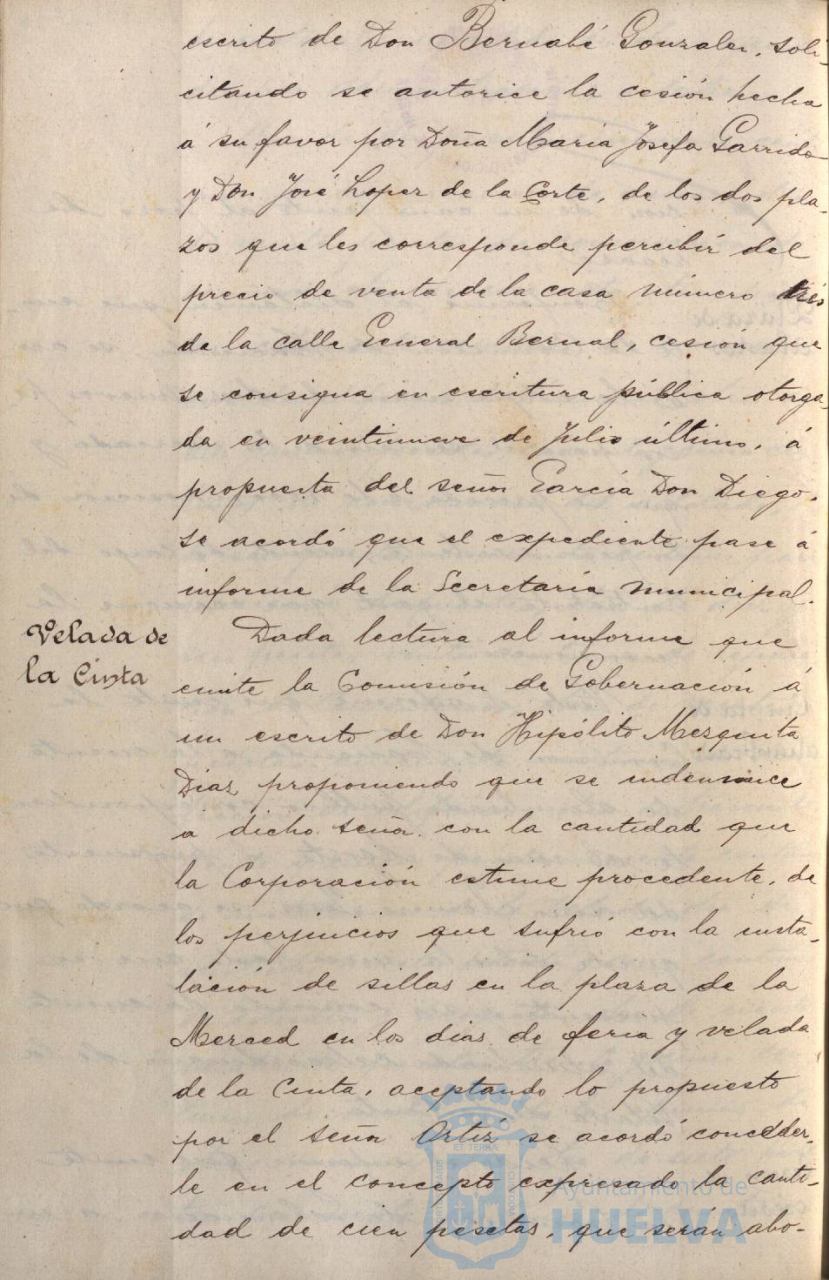 escrito de Don Bernabé Gonzalez, soli-
citando se autorice la cesión hecha
á su favor por Doña Maria Josefa Garrido
y Don José Lopez de la Corte, de los dos pla-
zos que les corresponde percibir del
precio de venta de la casa número tres
de la calle General Bernal, cesión que
se consigna en escritura pública otorga-
da en veintinueve de Julio último, á
propuesta del señor García Don Diego,
se acordó que el expediente pase á
informe de la Secretaría municipal.
Velada de
la Cinta
Dada lectura al informe que
emite la Comisión de Gobernación á
un escrito de Don Hipólito Mezquita
Diaz proponiendo que se indemnice
á dicho señor con la cantidad que
la Corporación estime procedente, de
los perjuicios que sufrió con la insta-
lación de sillas en la plaza de la
Merced en los dias de feria y velada
de la Cinta, aceptando lo propuesto
por el señor Ortiz se acordó conceder-
le en el concepto expresado la canti-
dad de cien pesetas, que serán abo-
Ayuntamiento de
HUELVA